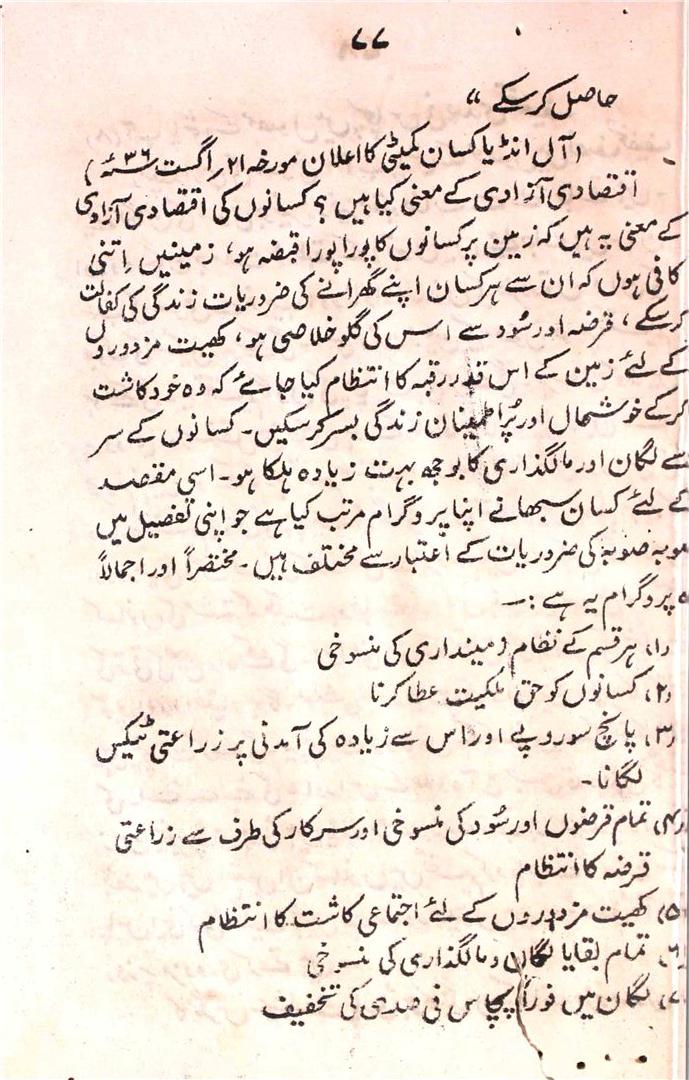 ۷۷
حاصل کرسکے “
(آل انڈیا کسان کمیٹی کا اعلان مورخہ ۲۱ اگست ۳۶ء)
اقتصادی آزادی کے معنی کیا ہیں ؟ کسانوں کی اقتصادی آزادی
کے معنی یہ ہیں کہ زمین پر کسانوں کا پورا پورا قبضہ ہو، زمینیں اِتنی
کافی ہوں کہ ان سے ہر کسان اپنے گھرانے کی ضروریات زندگی کی کفالت
کرسکے، قرضہ اور سُود سے اس کی گلو خلاصی ہو، کھیت مزدوروں
کے لئے زمین کے اس قدر رقبہ کا انتظام کیا جائے کہ وہ خود کاشت
کرکے خوشحال اور پُراطمینان زندگی بسر کرسکیں۔ کسانوں کے سر
سے لگان اور مالگذاری کا بوجھ بہت زیادہ ہلکا ہو۔ اسی مقصد
کے لئے کسان سبھا نے اپنا پروگرام مرتب کیا ہے جو اپنی تفصیل میں
صوبہ صوبہ کی ضروریات کے اعتبار سے مختلف ہیں۔ مختصراً اور اجمالاً
پروگرام یہ ہے :—
(۱) ہر قسم کے نظام زمینداری کی منسوخی
(۲) کسانوں کو حق ملکیت عطا کرنا
(۳) پانچ سو روپے اور اس سے زیادہ کی آمدنی پر زراعتی ٹیکس
لگانا۔
(۴) تمام قرضوں اور سُود کی منسوخی اور سرکار کی طرف سے زراعتی
قرضہ کا انتظام
(۵) کھیت مزدوروں کے لئے اجتماعی کاشت کا انتظام
(۶) تمام بقایا لگان و مالگذاری کی منسوخی
(۷) لگان میں فوراً پچاس فی صدی کی تخفیف